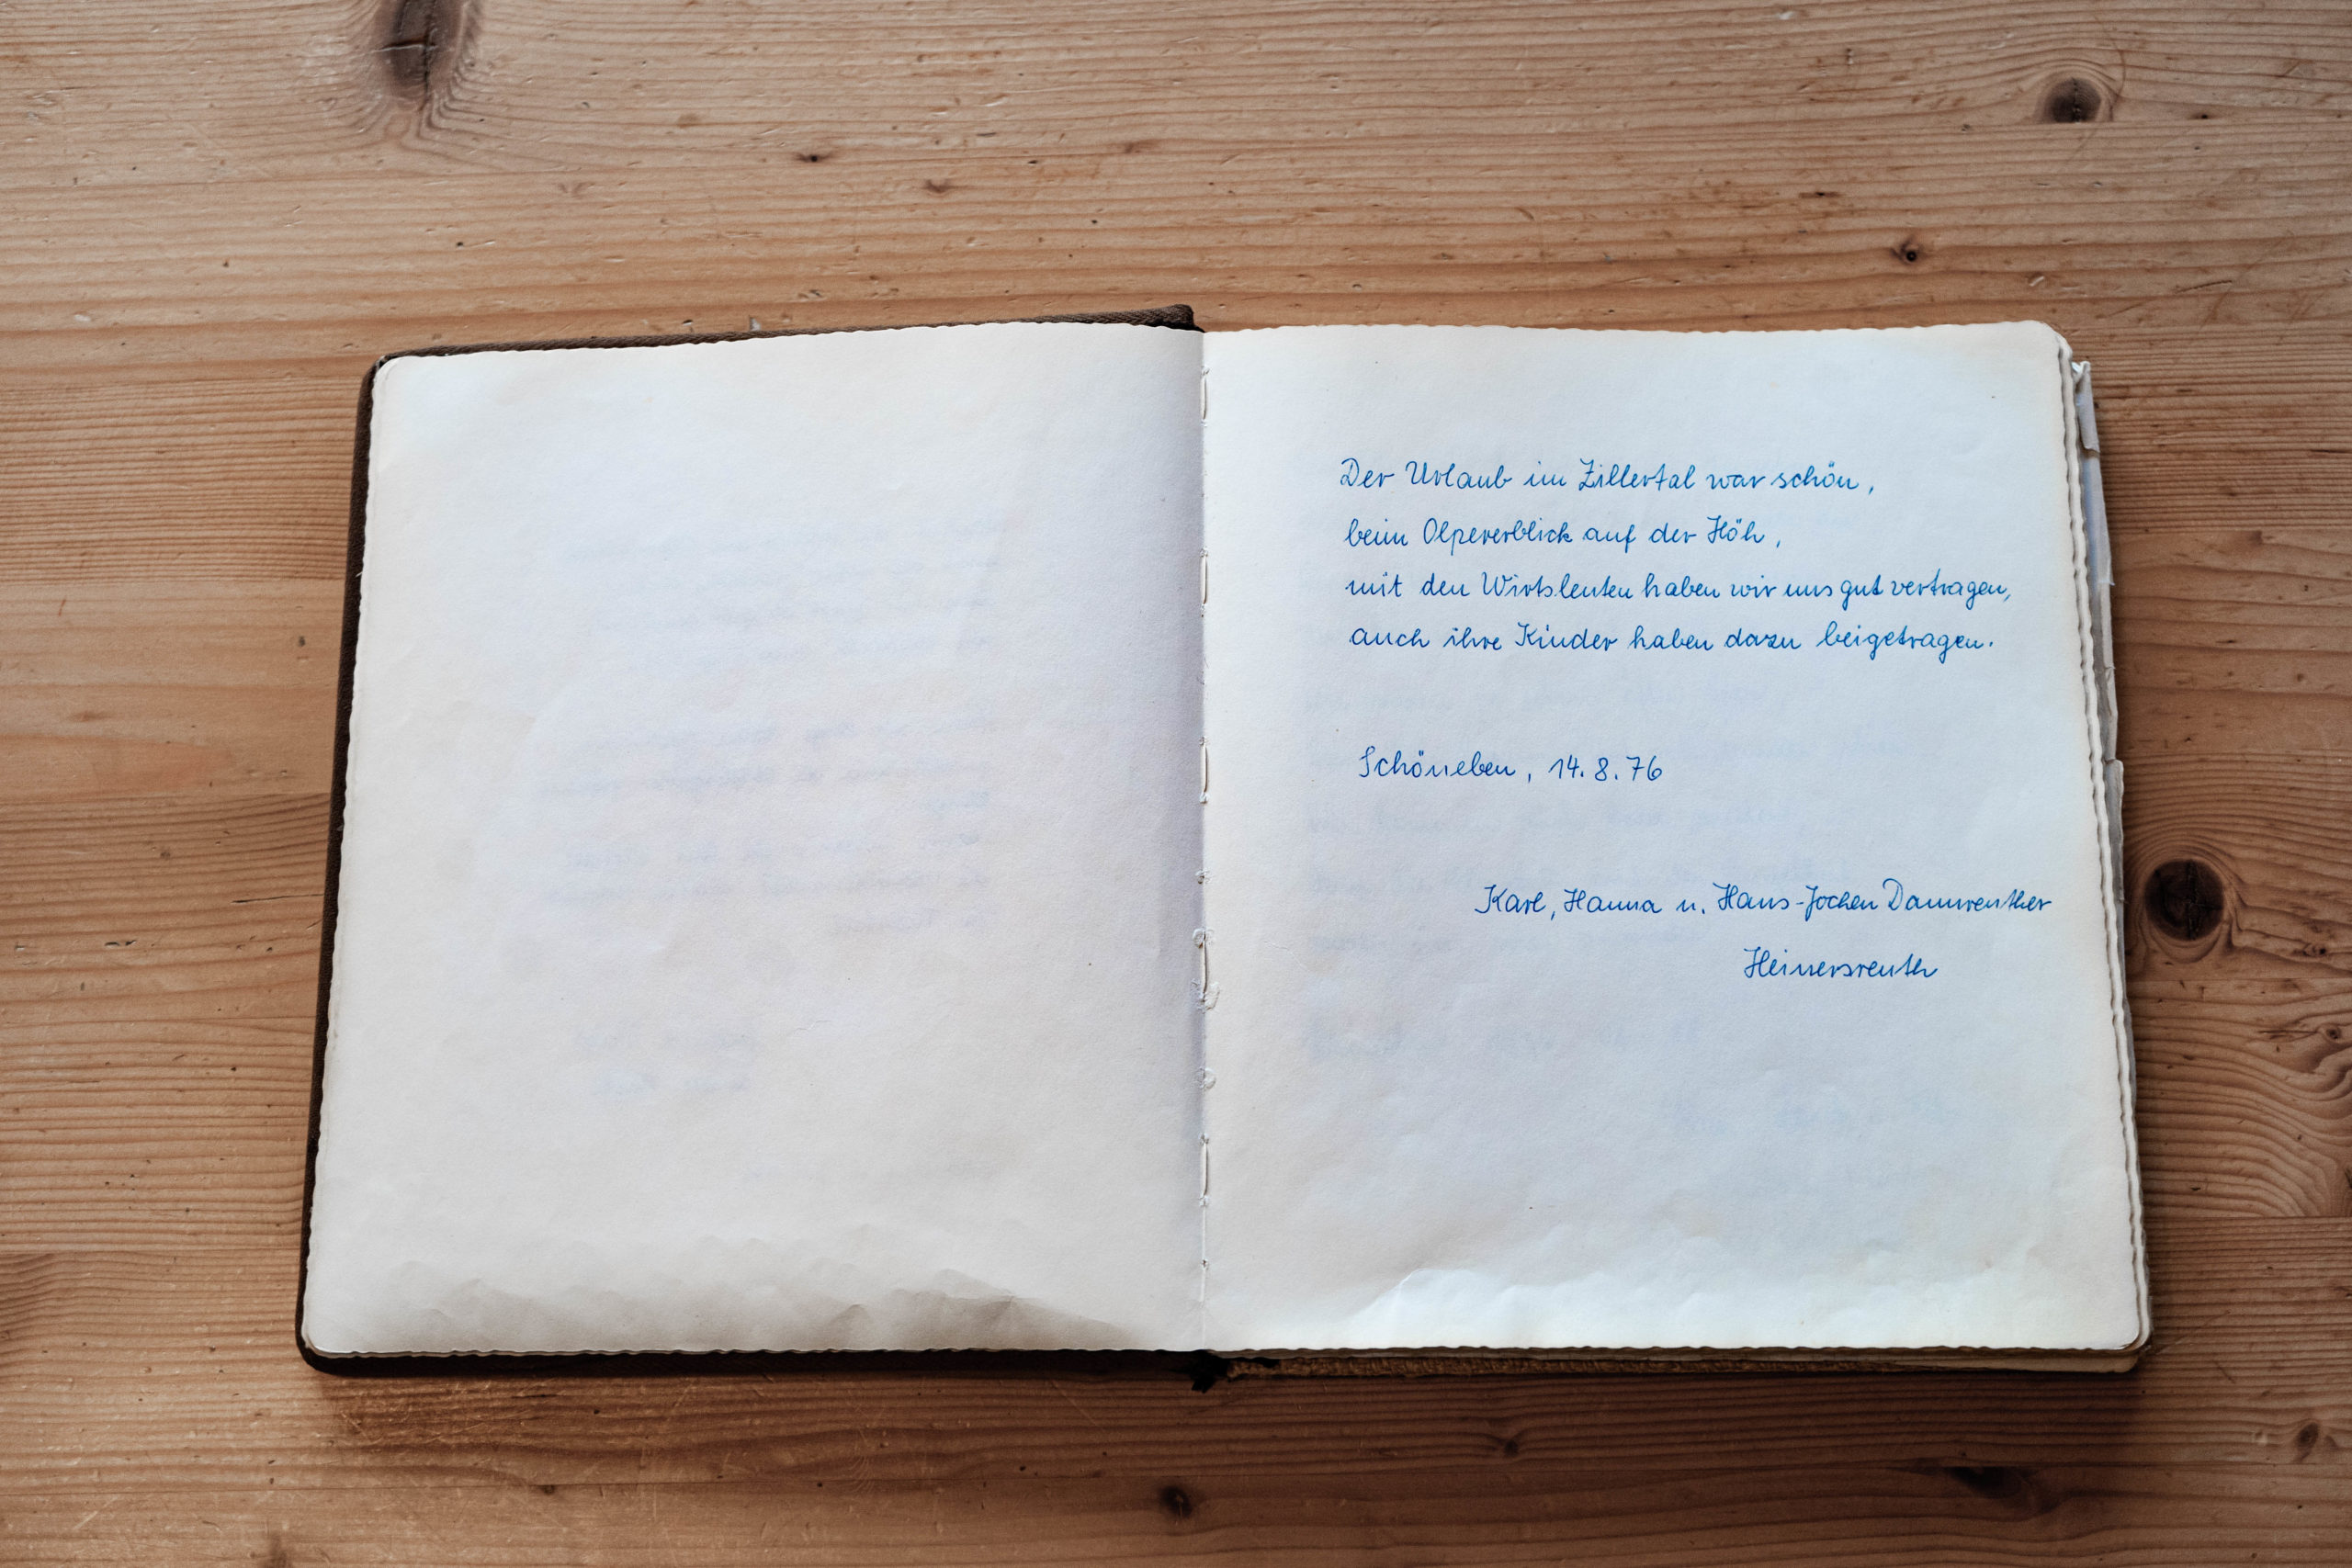 Der Urlaub im Zillertal war schön,
beim Olpererblick auf der Höh,
mit den Wirtsleuten haben wir uns gut vertragen,
auch ihre Kinder haben dazu beigetragen.
Schöneben, 14.8.76
Karl, Hanna u. Hans-Jochen Dannreuther
Heinersreuth